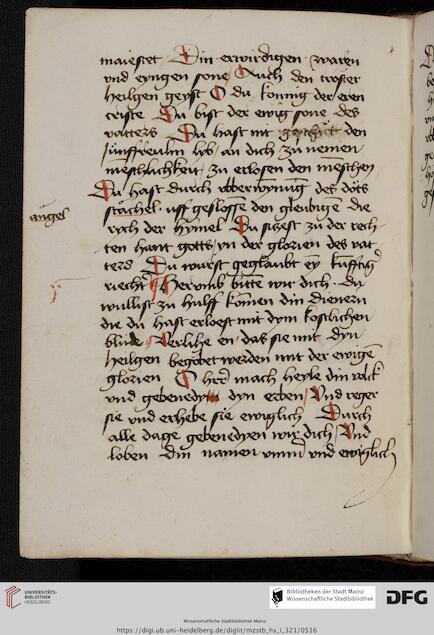 maiestet Din erwirdigen waren
vnd eyngen sone Auch den troster
heilgen geyst O du konnig der eren
criste Du bist der ewig sone des
vatters Du hast nit geschuͤt den
Junffreulin lyb an dich zu nemen
menschlichkeit zu erlosen den menschen
Du hast durch vberwynnūg des dots
angel
stachel vff geslossē den gleubigen die
rych der hymel Du sitzest zu der rech-
ten hant gotts yn der glorien des vat
ters Du wurst geglaubt eȳ kunfftig
riecht Hervmb bittē wir dich Du
wullist zu hulff komen din dienern
die du hast erloest mit dym kostlichen
blude Verlihe en das sie mit dyn
heilgen begobet werden mit der ewigē
glorien O her mach heyle din volck
vnd gebenedy dyn erben Vnd reger
sie vnd erhebe sie ewiglich Durch
alle dage gebenedyen wir dich Vnd
loben din namen vmm vnd ewiglich
UNIVERSITÄTS-
BIBLIOTHEK
HEIDELBERG
Bibliotheken der Stadt Mainz
Wissenschaftliche Stadtbibliothek
DFG
Wissenschaftliche Stadtbibliothek Mainz
https://digi.ub.uni-heidelberg.de/diglit/mzstb_hs_i_321/0516